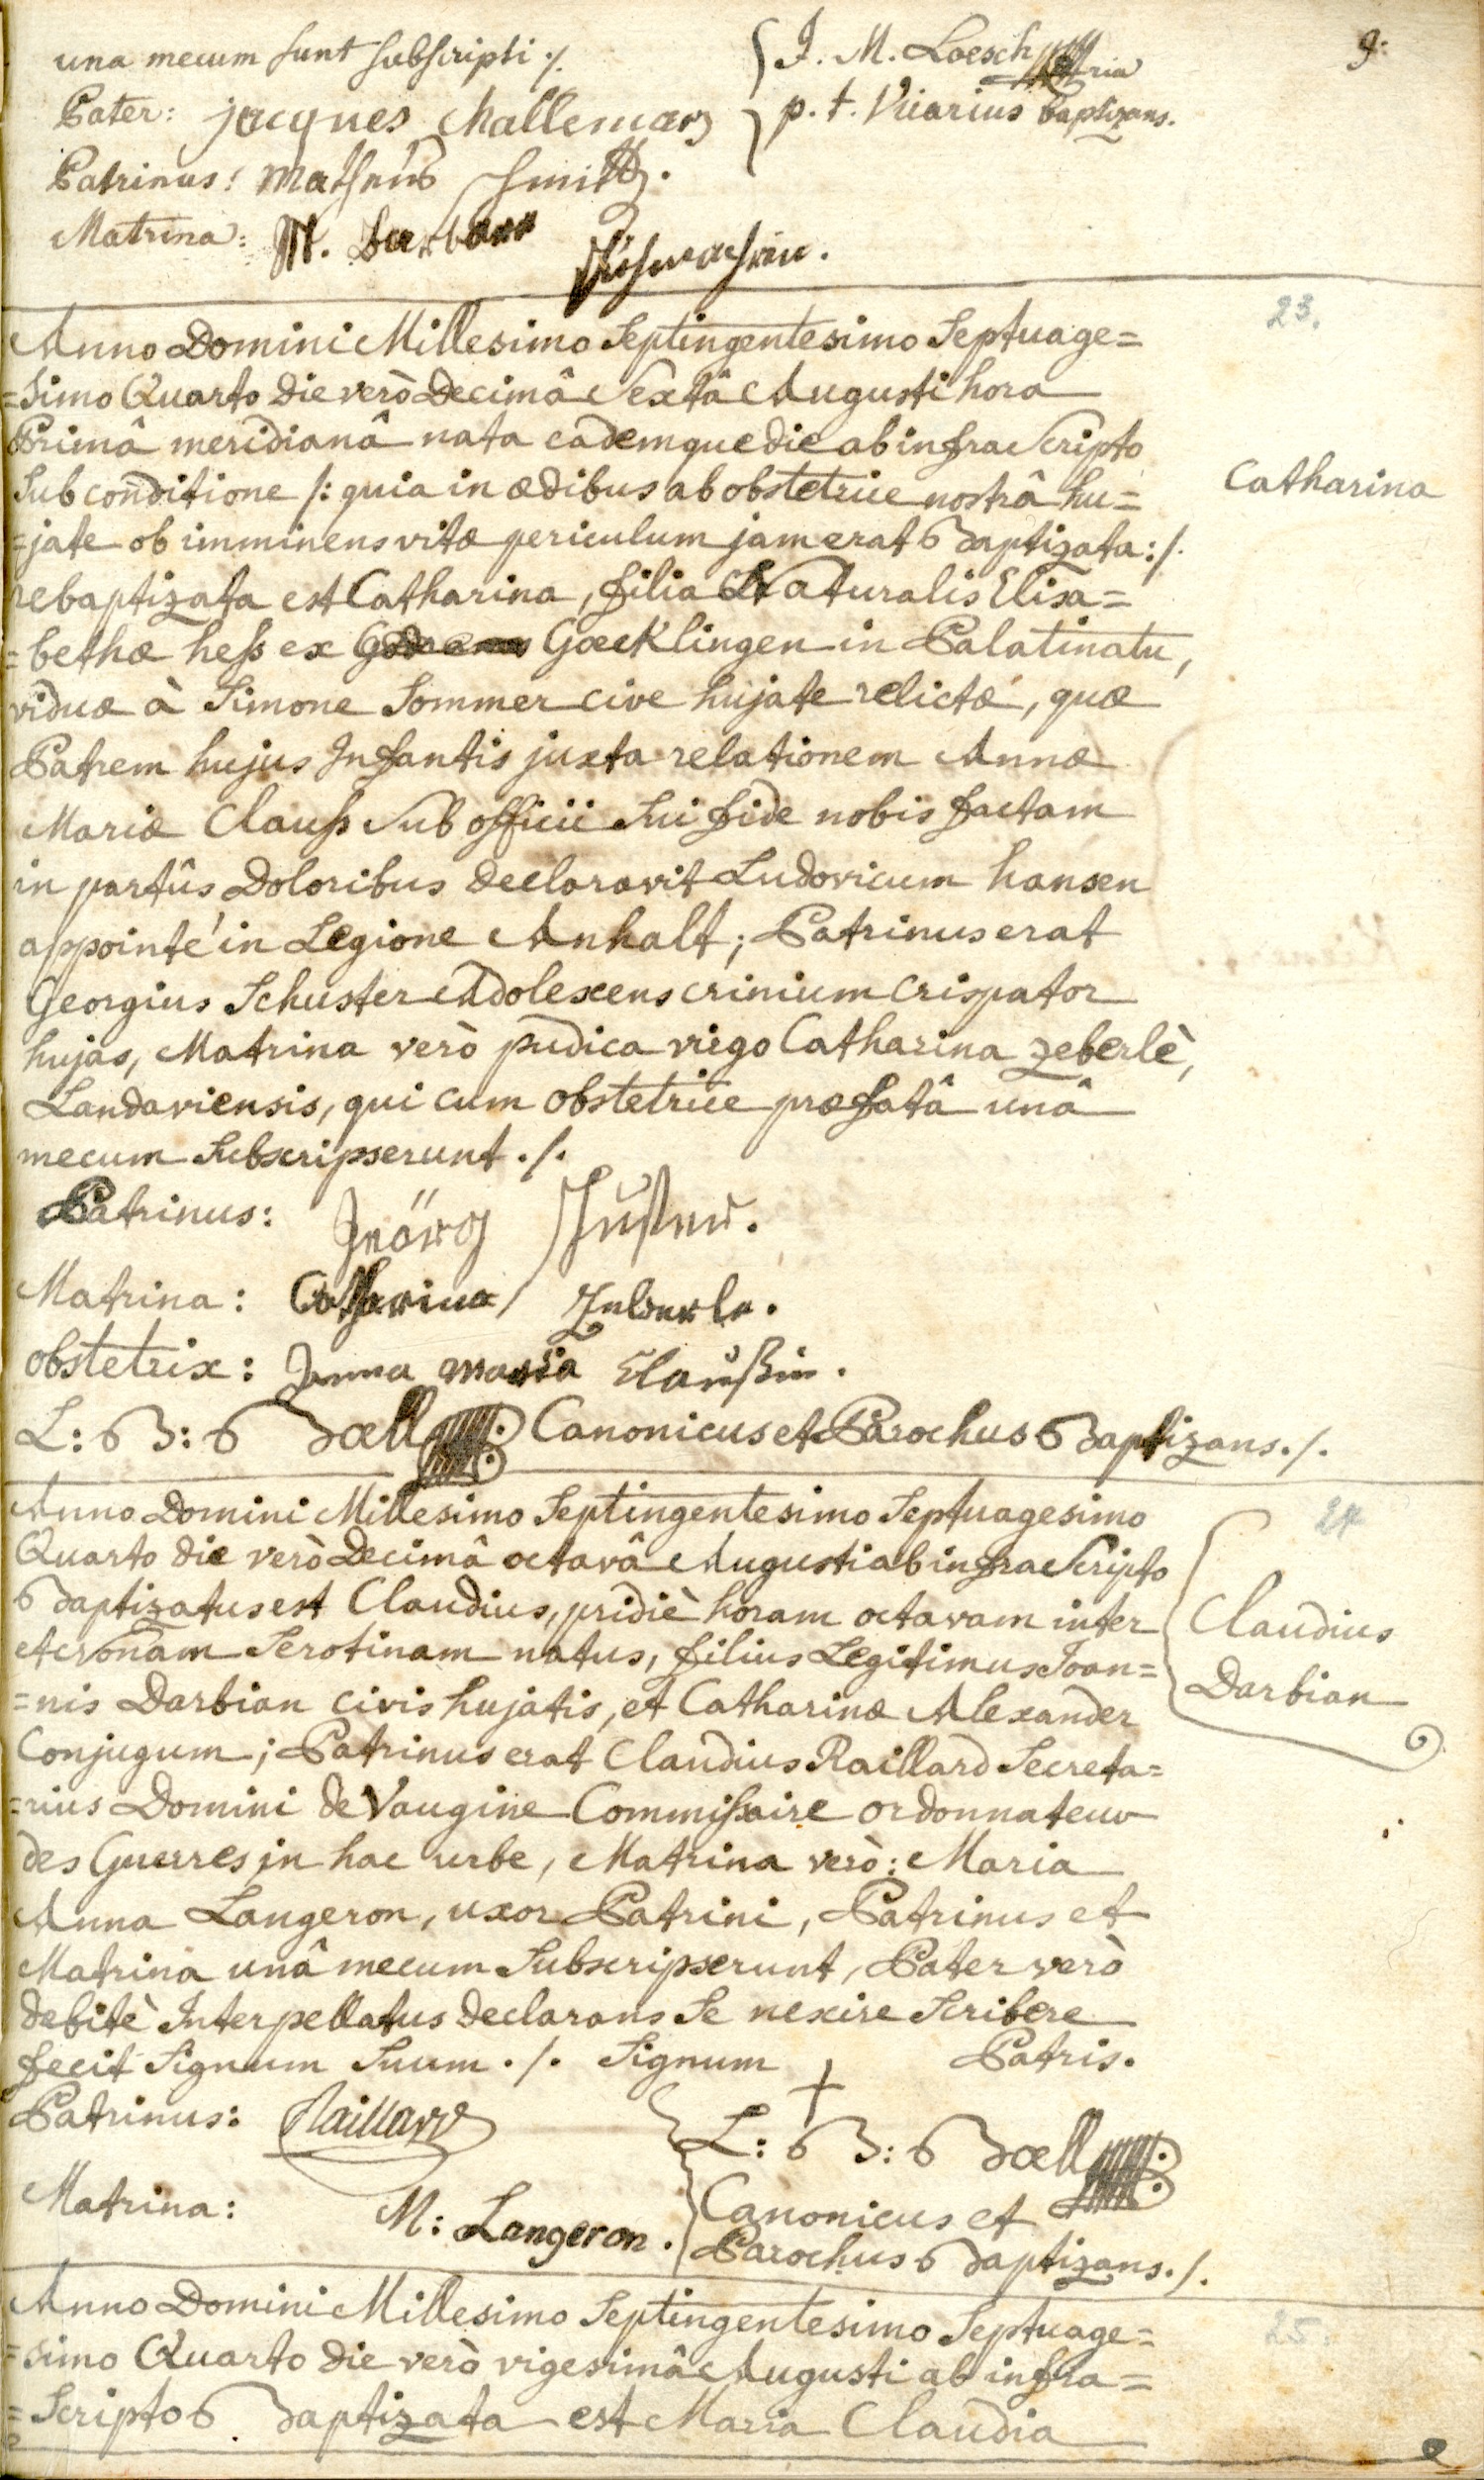 9:
una mecum sunt subscripti ./.
Pater: jacques Mallemar
J. M. Loesch
p. t. Vicarius baptizans.
Patrinus: Matheus Smitt.
Matrina: M. Barbara
23.
Anno Domini Millesimo Septingentesimo Septuage=
=simo Quarto die verò Decimâ Sextâ Augusti hora
Primâ meridianâ nata eademque die ab infra Scripto
Sub conditione /: quia in ædibus ab obstetrice nostrâ hu=
=jate ob imminens vitæ periculum jam erat Baptizata :/.
Catharina
rebaptizata est Catharina, filia Naturalis Elisa=
=bethæ heß ex Goecklingen in Palatinatu,
viduæ à Simone Sommer cive hujate relictæ, quæ
Patrem hujus Infantis juxta relationem Annæ
Mariæ Clauß Sub officii Sui fide nobis factam
in partûs Doloribus declaravit Ludovicum hansen
appointé in Legione Anhalt; Patrinus erat
Georgius Schuster Adolescens crinium crispator
hujas, Matrina verò pudica virgo Catharina zeberlè,
Landaviensis, qui cum obstetrice præfatâ unâ
mecum Subscripserunt ./.
Patrinus: Jeörg Schuster.
Matrina: Catharina Zeberle.
obstetrix: Anna maria Claußin.
L: B: Boell Canonicus et Parochus Baptizans ./.
24
Anno Domini Millesimo Septingentesimo Septuagesimo
Quarto die verò Decimâ octavâ Augusti ab infra Scripto
Baptizatus est Claudius, pridiè horam octavam inter
et nonam Serotinam natus, filius Legitimus Joan=
=nis Darbian civis hujatis, et Catharinæ Alexander
Claudius
Darbian
Conjugum; Patrinus erat Claudius Raillard Secreta=
=rius Domini de Vaugine Commißaire ordonnateur
des Guerres in hac urbe, Matrina verò: Maria
Anna Langeron, uxor Patrini, Patrinus et
Matrina unâ mecum Subscripserunt, Pater verò
debitè Interpellatus declarans Se nescire Scribere
fecit Signum Suum ./. Signum + Patris.
Patrinus: Raillard
L: B: Boell
Canonicus et
Parochus Baptizans ./.
Matrina: M: Langeron.
25.
Anno Domini Millesimo Septingentesimo Septuage=
=simo Quarto die verò vigesimâ Augusti ab infra=
=Scripto Baptizata est Maria Claudia